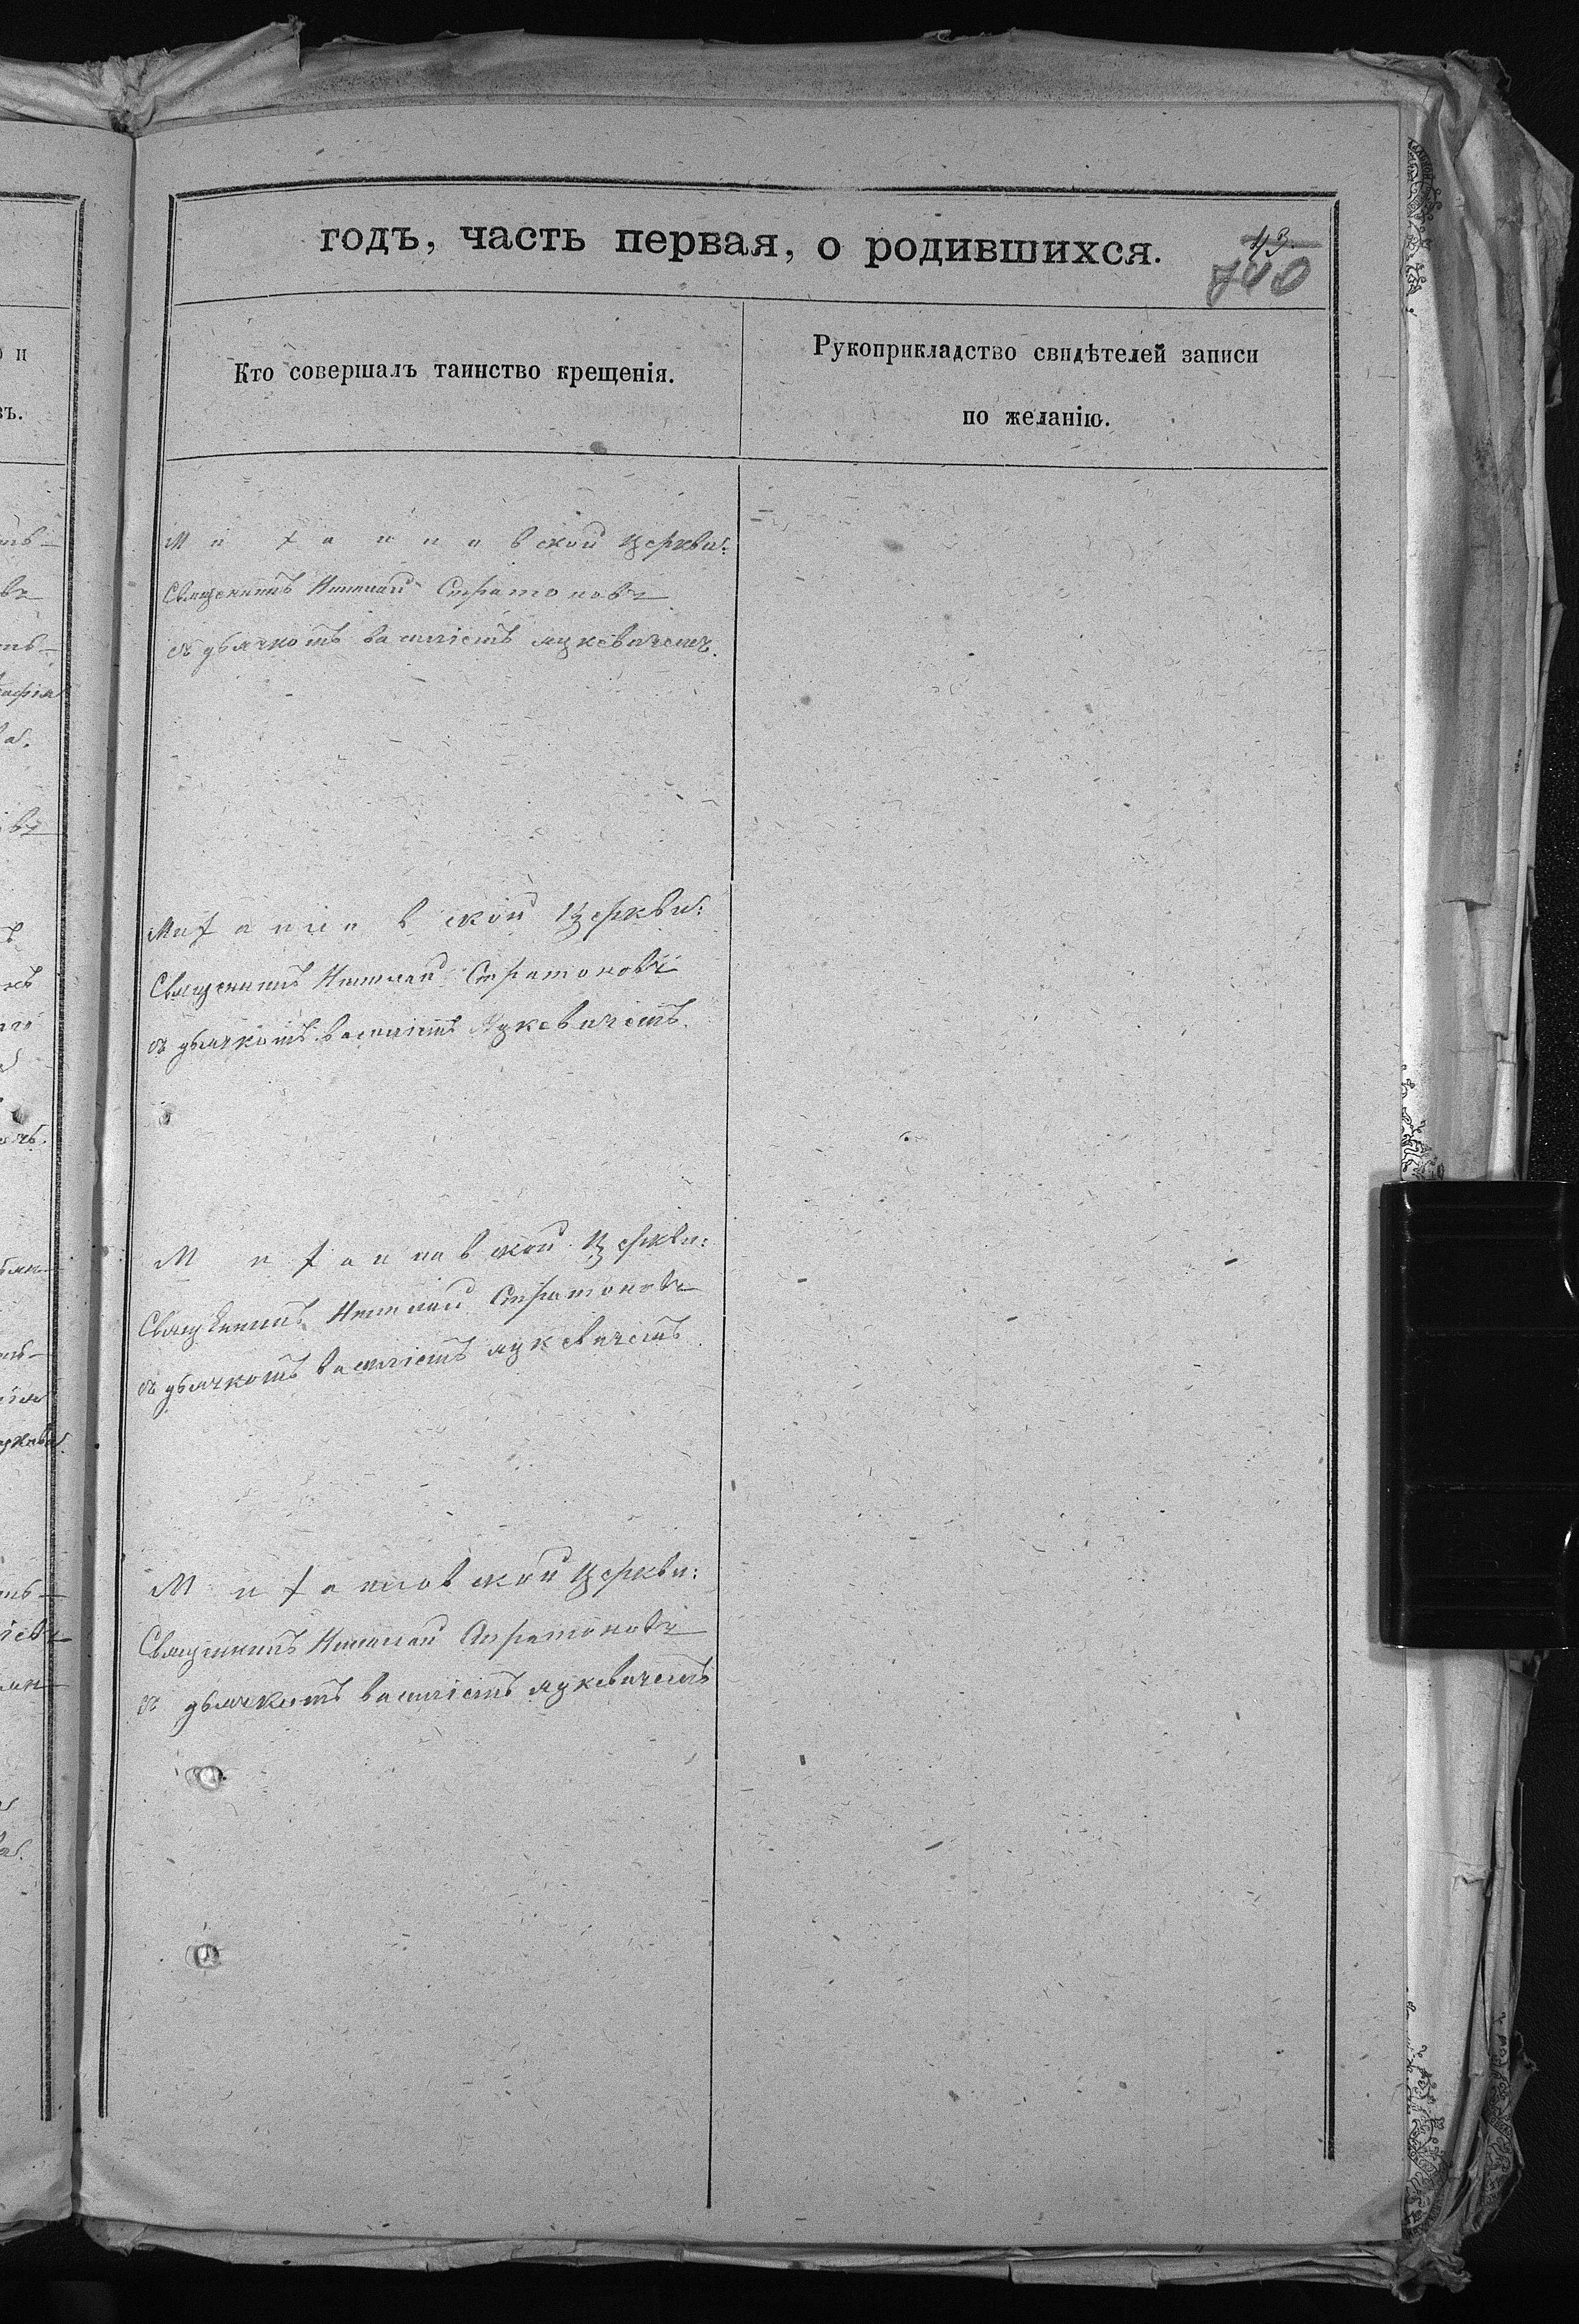 годъ, часть первая, о родившихся.
43.
740
Кто совершалъ таинство крещенія.
Рукоприкладство свидѣтелей записи
по желанію.
вской церкви:
Священникъ Николай Стратоновъ
съ дьячкомъ Василіемъ Яцкевичемъ.
вской Церкви:
Священникъ Николай Стратоновъ
съ дьячкомъ Василіемъ Яцкевичемъ.
вской Церкви:
Священникъ Николай Стратоновъ
съ дьячкомъ Василіемъ Яцкевичемъ
вской Церкви:
Священникъ Николай Стратоновъ
съ дьячкомъ Василіемъ Яцкевичемъ